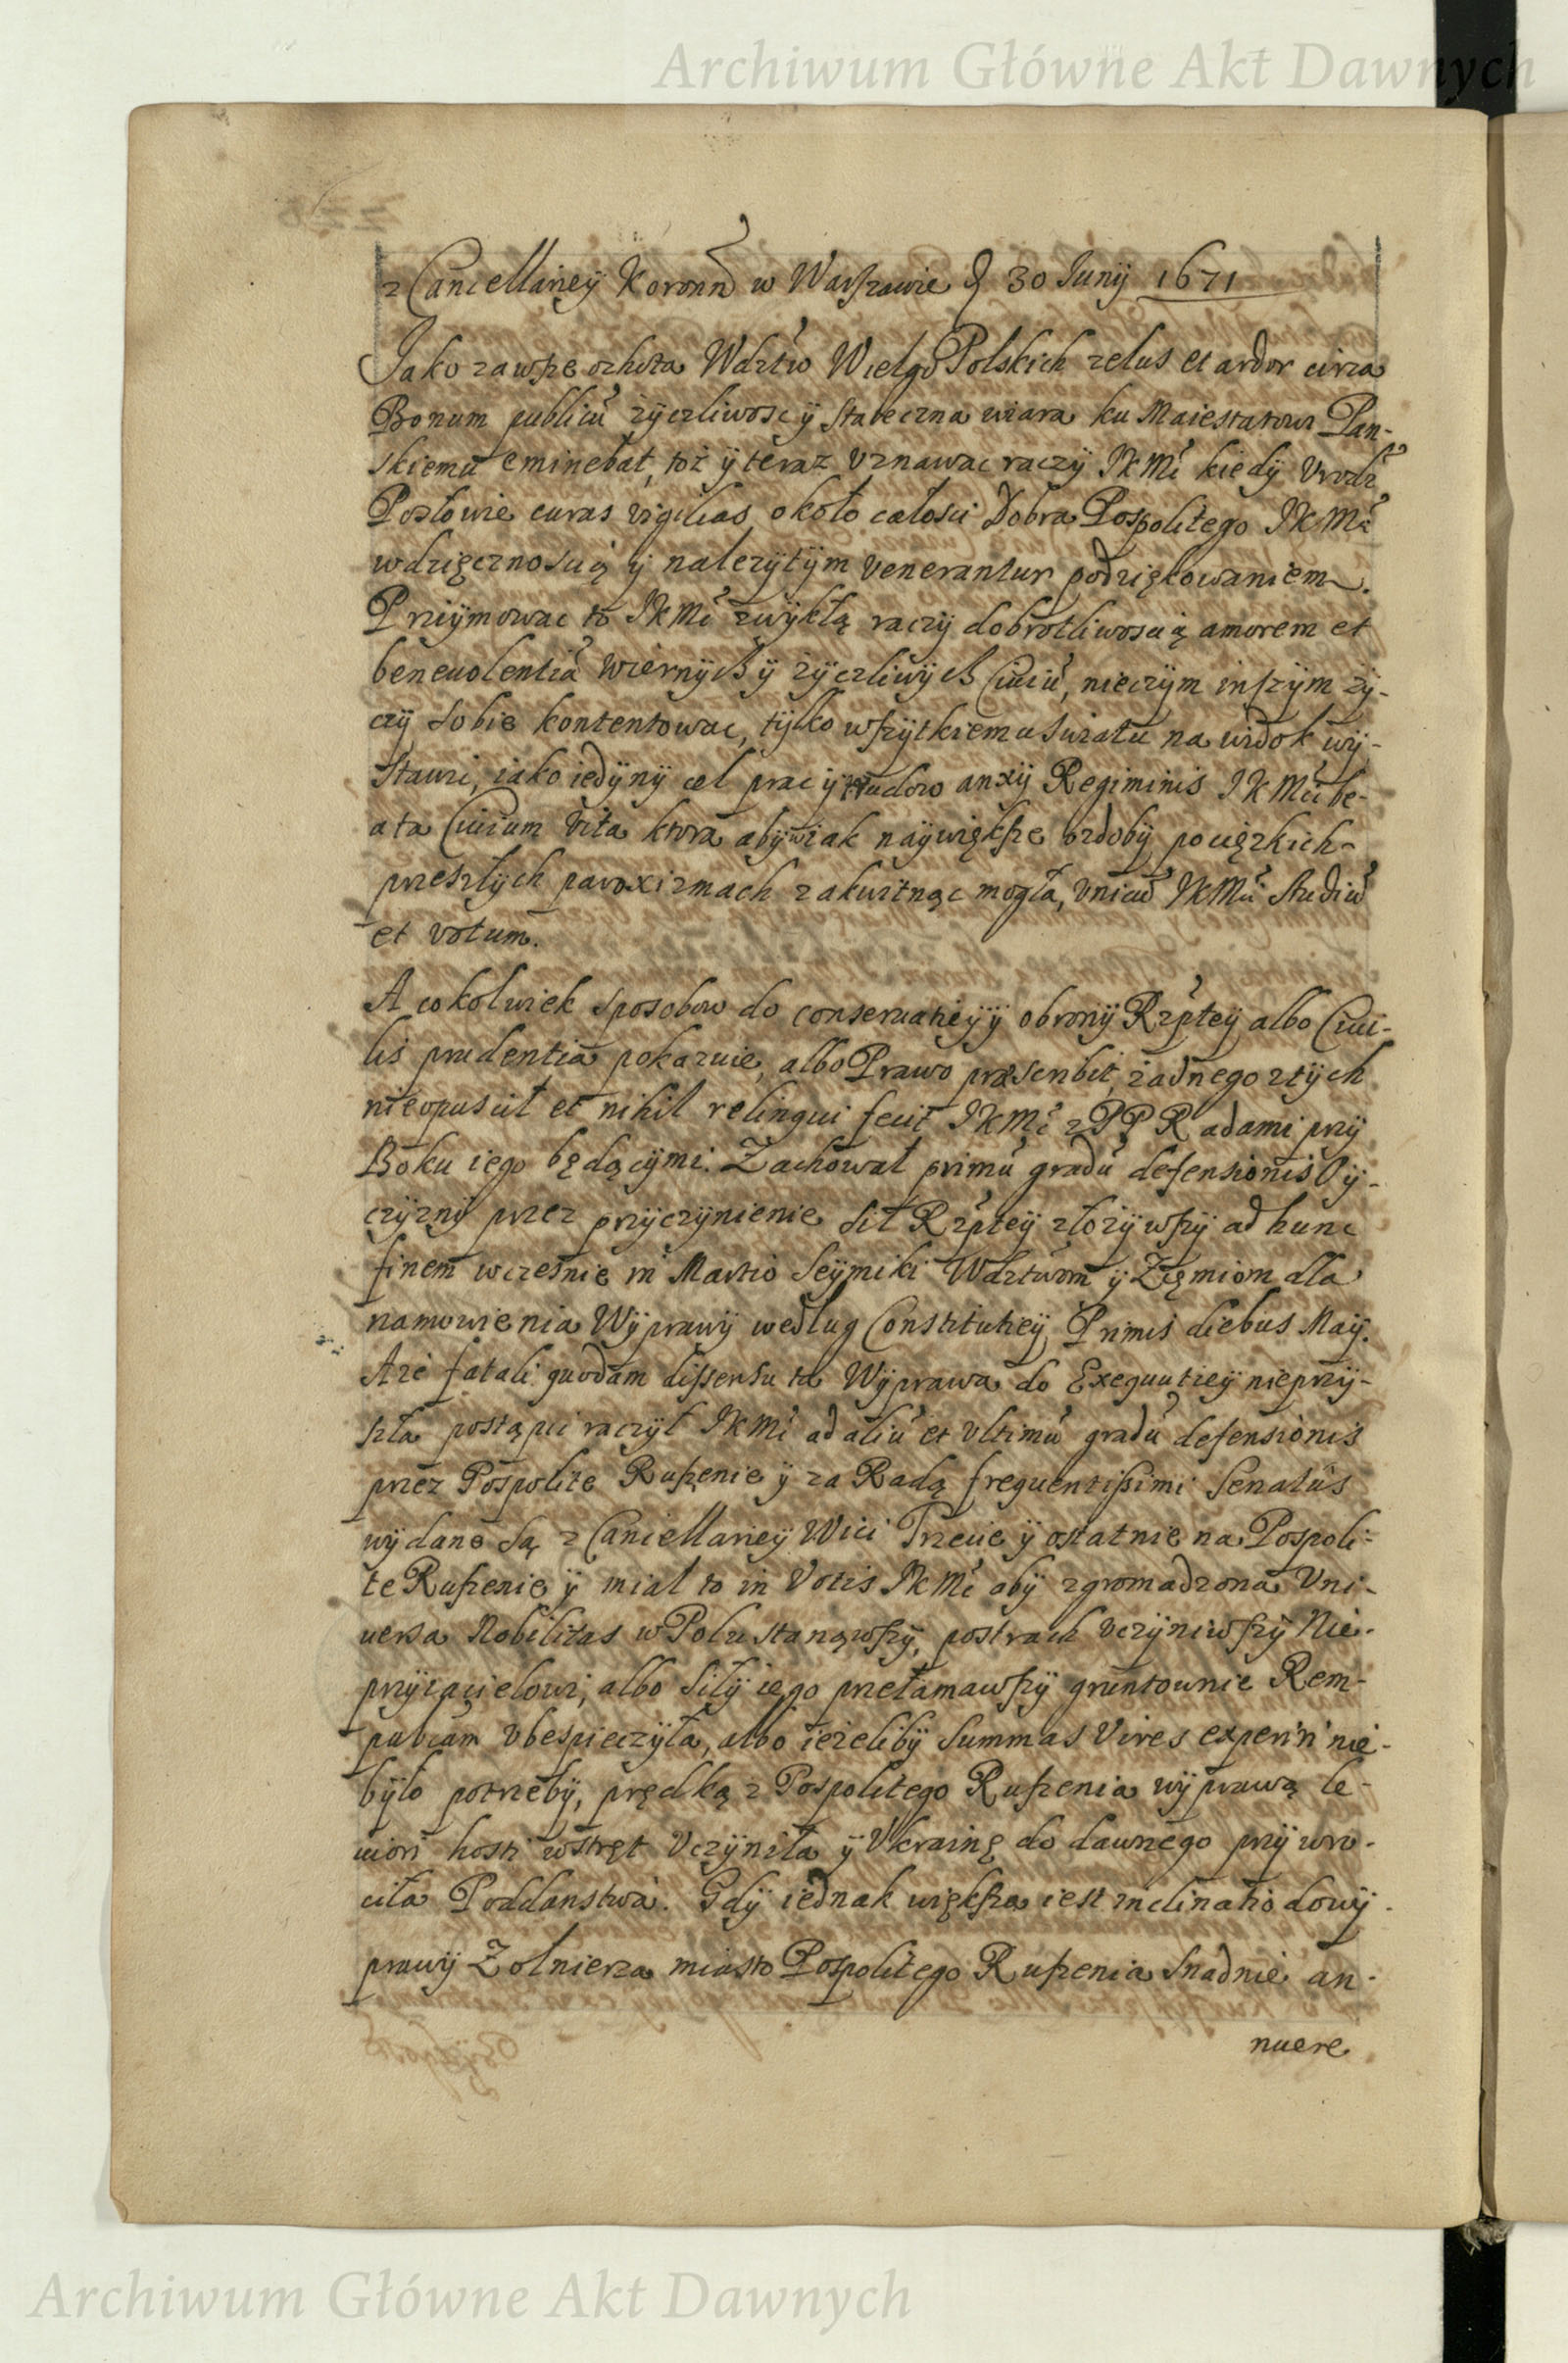 Archiwum Główne Akt Dawnych
z Cancellariey Koronn w Warszawie D 30 Junÿ 1671
Jako zawsze ochota Wdztw Wielgo Polskich zelus et ardor circa
Bonum publicũ zÿczliwosc ÿ stateczna wiara ku Maiestatowi Pan-
skiemu eminebat, toż ÿ teraz uznawac raczÿ JKMć kiedÿ Urodz
Posłowie curas vigilias około całosci Dobra Pospolitego JKMci
wdzięcznoscią ÿ nalezÿtÿm venerantur podziękowaniem.
Prziÿmowac to JKMć zwÿkłą raczÿ dobrotliwoscią amorem et
beneuolentiã wiernÿch ÿ zÿczliwÿch Ciuiũ, nieczÿm inszÿm zÿ-
czÿ sobie kontentowac, tÿlko wszÿtkiemu swiatu na widok wÿ-
stawi, iako iedÿnÿ cel prac ÿ trudow anxÿ Regiminis JKMci be-
ata Ciuium vita ktora abÿ w iak naÿwiększe ozdobÿ po cięzkich
przeszłÿch paroxizmach zakwitnąc mogła, unicũ JKMci studiũ
et votum.
A cokolwiek sposobow do conseruatieÿ ÿ obronÿ Rzpteÿ albo Ciui-
lis prudentia pokazuie, albo Prawo præscribit, żadnego z tÿch
nieopuscił et nihil relinqui fecit JKMć z PP Radami przÿ
Boku iego będącÿmi. Zachował primũ gradũ defensionis Oÿ-
czÿznÿ przez przÿczÿnienie sił Rzpteÿ złożÿwszÿ ad hunc
finem wczesnie in Martio Seÿmiki Wdztwom ÿ Ziemiom dla
namowienia Wÿprawÿ według Constitutieÿ Primis diebus Maÿ.
Aże fatali quodam dissensu ta Wÿprawa do Exequutieÿ nieprzÿ-
szła postąpic raczÿł JKMć ad aliũ et ultimũ gradũ defensionis
przez Pospolite Ruszenie ÿ za Radą frequentissimi Senatus
wÿdane są z Cancellarieÿ Wici Trzecie ÿ ostatnie na Pospoli-
te Ruszenie ÿ miał to in Votis JKMć abÿ zgromadzona Uni-
uersa Nobilitas w Polu stanąwszÿ, postrach uczÿniwszÿ Nie-
przÿiacielowi, albo siłÿ iego przełamawszÿ gruntownie Rem-
publcam ubespieczÿła, albo ieżelibÿ summas vires experiri nie
bÿło potrzebÿ, prędką z Pospolitego Ruszenia wÿprawą le-
uiori hosti wstręt uczÿniła ÿ Ukrainę do dawnego przÿwro-
ciła Poddanstwa. Gdÿ iednak większa iest inclinatio do wÿ-
prawÿ Zołnierza miasto Pospolitego Ruszenia snadnie an-
nuere
Archiwum Główne Akt Dawnych